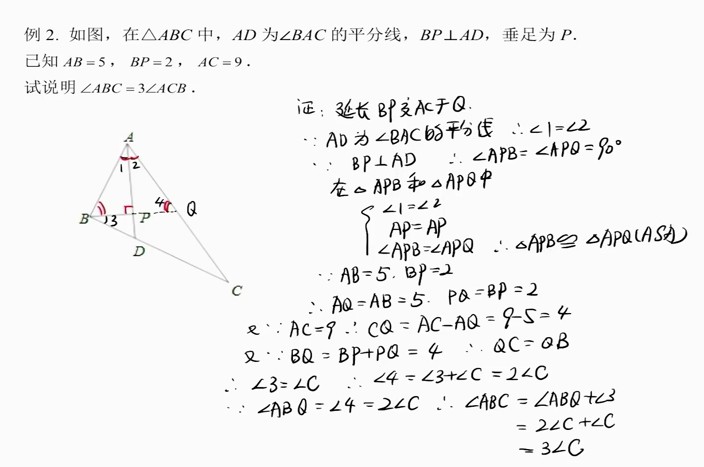 例 2. 如图，在△ABC 中，AD 为∠BAC 的平分线，BP⊥AD，垂足为 P.
已知 AB = 5，BP = 2，AC = 9.
试说明 ∠ABC = 3∠ACB.
证: 延长 BP交AC于Q.
∵ AD 为 ∠BAC的平分线 ∴ ∠1=∠2
∵ BP⊥AD ∴ ∠APB=∠APQ=90°
在△APB 和 △APQ中
∠1=∠2
AP=AP
∠APB=∠APQ ∴ △APB≌△APQ(ASA)
∵ AB=5. BP=2
∴ AQ=AB=5. PQ=BP=2
又∵ AC=9 ∴ CQ=AC-AQ=9-5=4
又∵ BQ=BP+PQ=4 ∴ QC=QB
∴ ∠3=∠C ∴ ∠4=∠3+∠C=2∠C
∵ ∠ABQ=∠4=2∠C ∴ ∠ABC=∠ABQ+∠3
=2∠C+∠C
=3∠C
A
1 2
4 Q
B 3 P
D
C